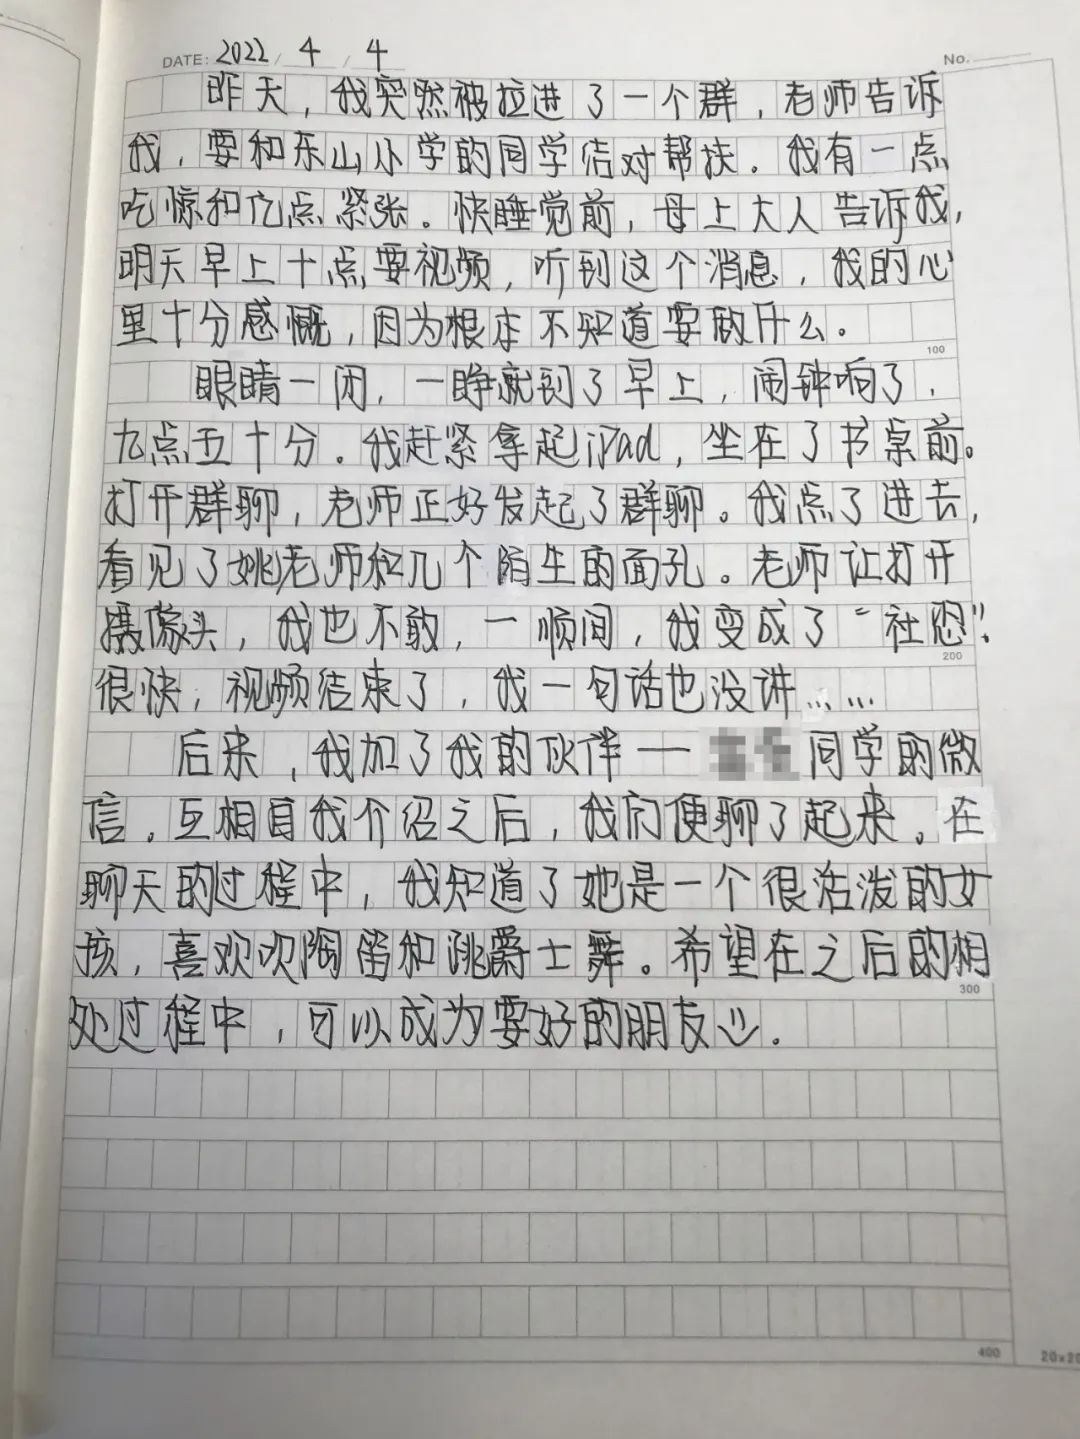 DATE: 2022 / 4 / 4 No.
昨天，我突然被拉进了一个群，老师告诉
我，要和东山小学的同学结对帮扶。我有一点
吃惊和亿点紧张。快睡觉前，母上大人告诉我，
明天早上十点要视频，听到这个消息，我的心
里十分感慨，因为根本不知道要做什么。
100
眼睛一闭，一睁就到了早上，闹钟响了，
九点五十分。我赶紧拿起iPad，坐在了书桌前。
打开群聊，老师正好发起了群聊。我点了进去，
看见了姚老师和几个陌生的面孔。老师让打开
摄像头，我也不敢，一顺间，我变成了“社恐”。
200
很快，视频结束了，我一句话也没讲……
后来，我加了我的伙伴—— 同学的微
信，互相自我介绍之后，我们便聊了起来。在
聊天的过程中，我知道了她是一个很活泼的女
孩，喜欢吹陶笛和跳爵士舞。希望在之后的相
300
处过程中，可以成为要好的朋友。
400
20×20